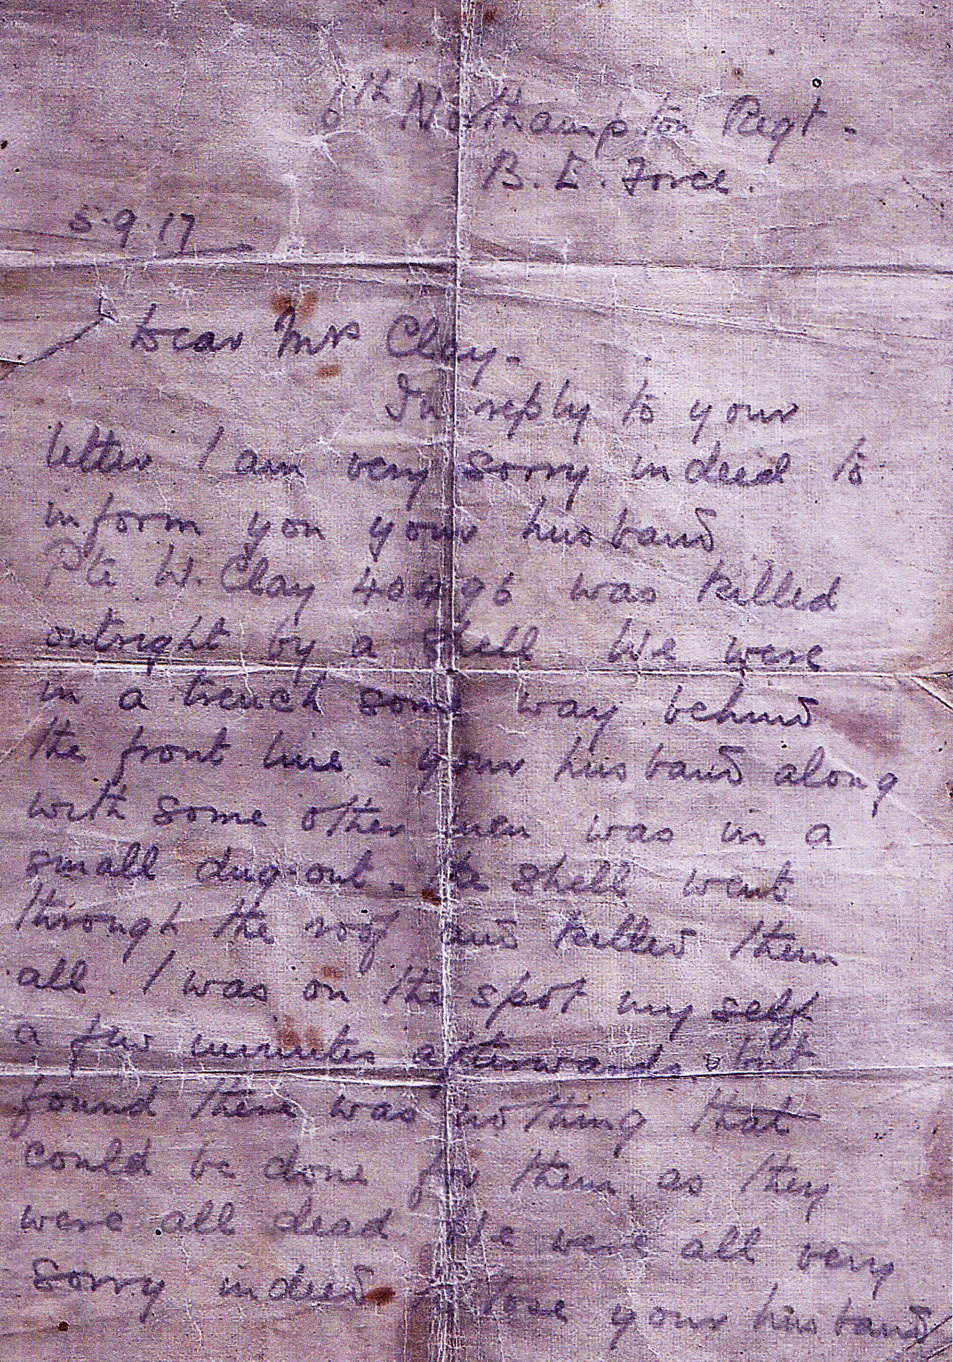 6th Northampton Regt.
B. E. Force.
5.9.17
Dear Mrs Clay.
In reply to your
letter I am very sorry indeed to
inform you your husband
Pte W. Clay 40496 was killed
outright by a shell. We were
in a trench some way behind
the front line - your husband along
with some other men was in a
small dug-out - the shell went
through the roof and killed them
all. I was on the spot my self
a few minutes afterwards, but
found there was nothing that
could be done for them, as they
were all dead. We were all very
sorry indeed to lose your husband